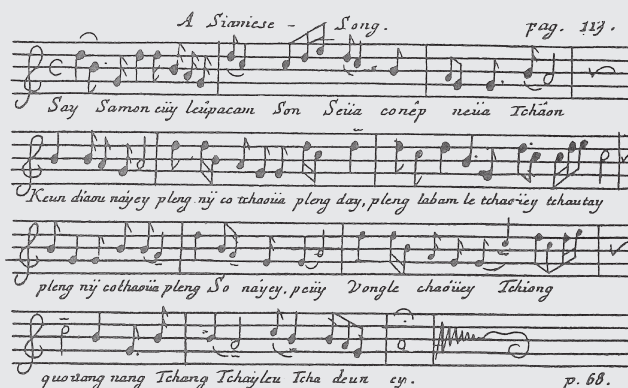 A Siamese - Song. pag. 113.
Say Samon eüy leûpacam Son Seüa conêp neüa Tchâon
Keun diaou nayey pleng nÿ co tchaoüa pleng day, pleng labam le tchaoüey tchautay
pleng nÿ cothaoüa pleng So nayey, peüy Vongle chaoüey Tchiong
quouang nang Tchang Tchayleu Tcha deun ey. p. 68.